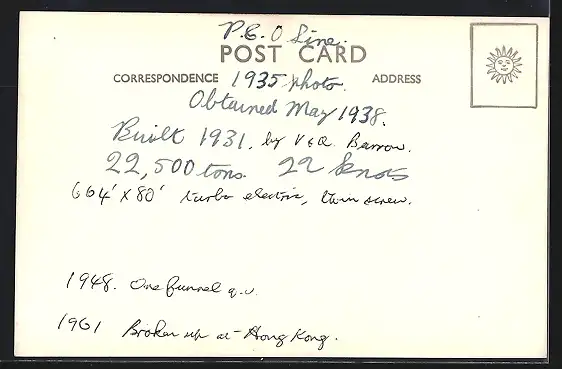 P. & O Line.
POST CARD
CORRESPONDENCE 1935 photo. ADDRESS
Obtained May 1938.
Built 1931. by V & A Barrow.
22,500 tons. 22 knots
664' x 80' turbo electric, twin screw.
1948. One funnel q.v.
1961 Broken up at Hong Kong.